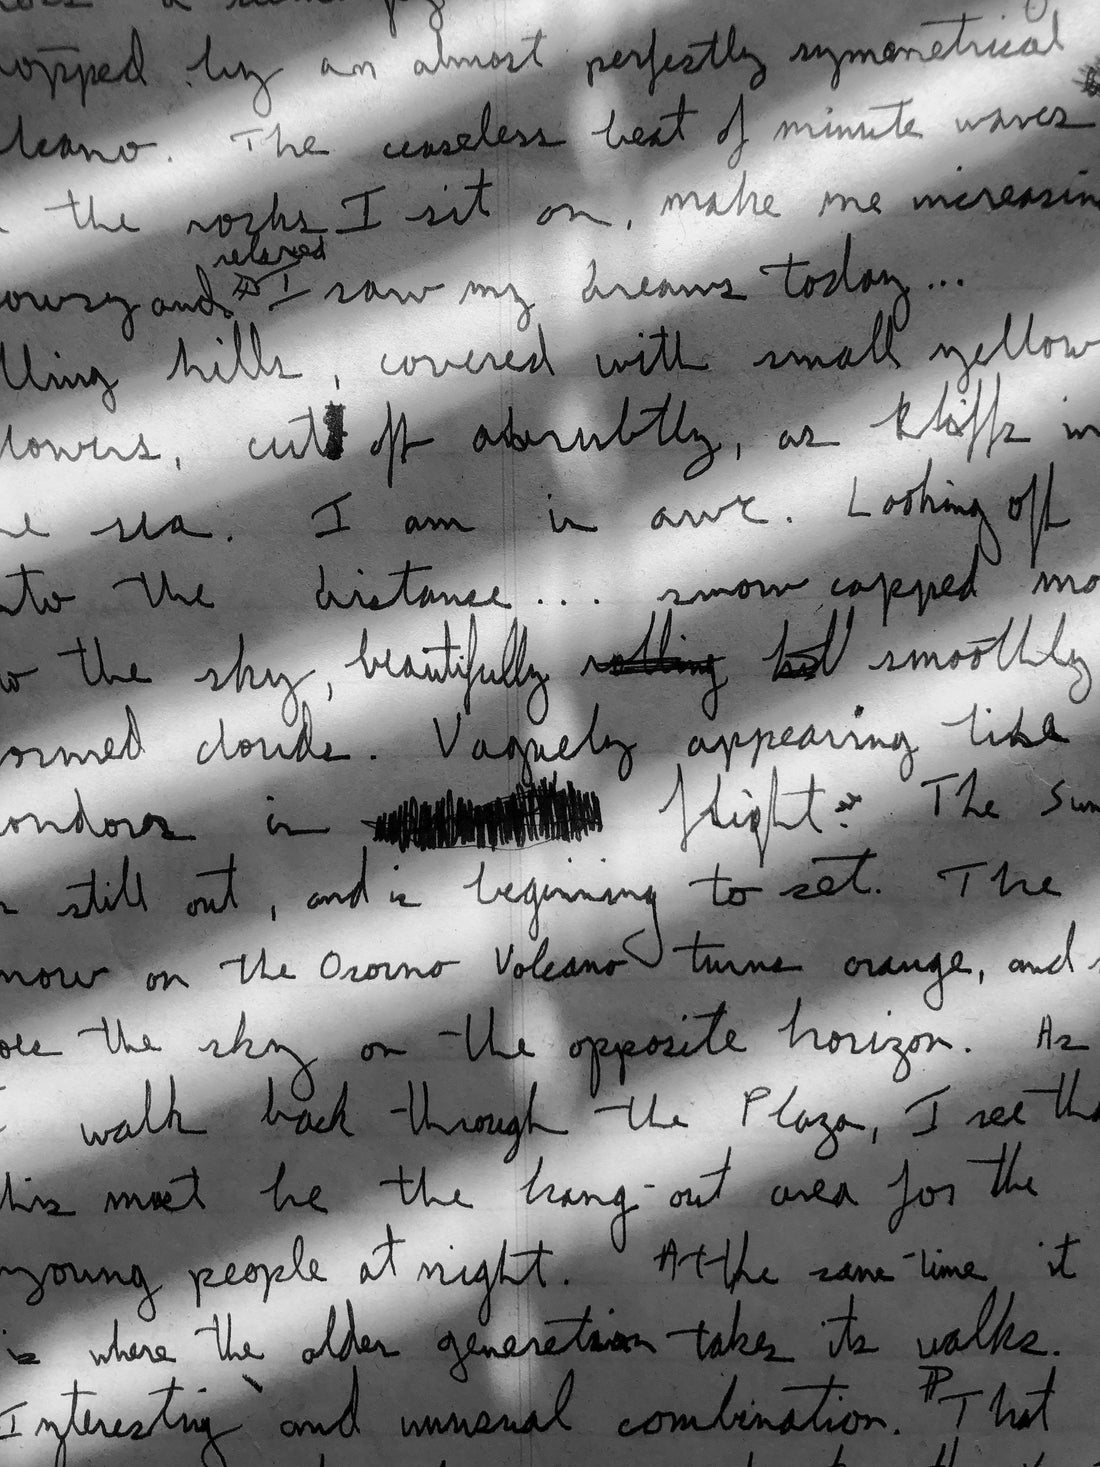 topped by an almost perfectly symmetrical
lcano. The ceaseless beat of minute waves
the rocks I sit on, make me increasin
relaxed
owsy and I saw my dreams today...
lling hills, covered with small yellow
lowers, cut off abrubtly, as kliffs in
he sea. I am in awe. Looking off
nto the distance... snow capped mo
w the sky, beautifully rolling but smoothly
ormed clouds. Vaguely appearing like
condors in flight. The Sun
still out, and is beginning to set. The
now on the Osorno Volcano turns orange, and s
oes the sky on the opposite horizon. As
I walk back through the Plaza, I see tha
this must be the hang-out area for the
young people at night. At the same time it
is where the older generation takes its walks.
Interesting and unusual combination. That